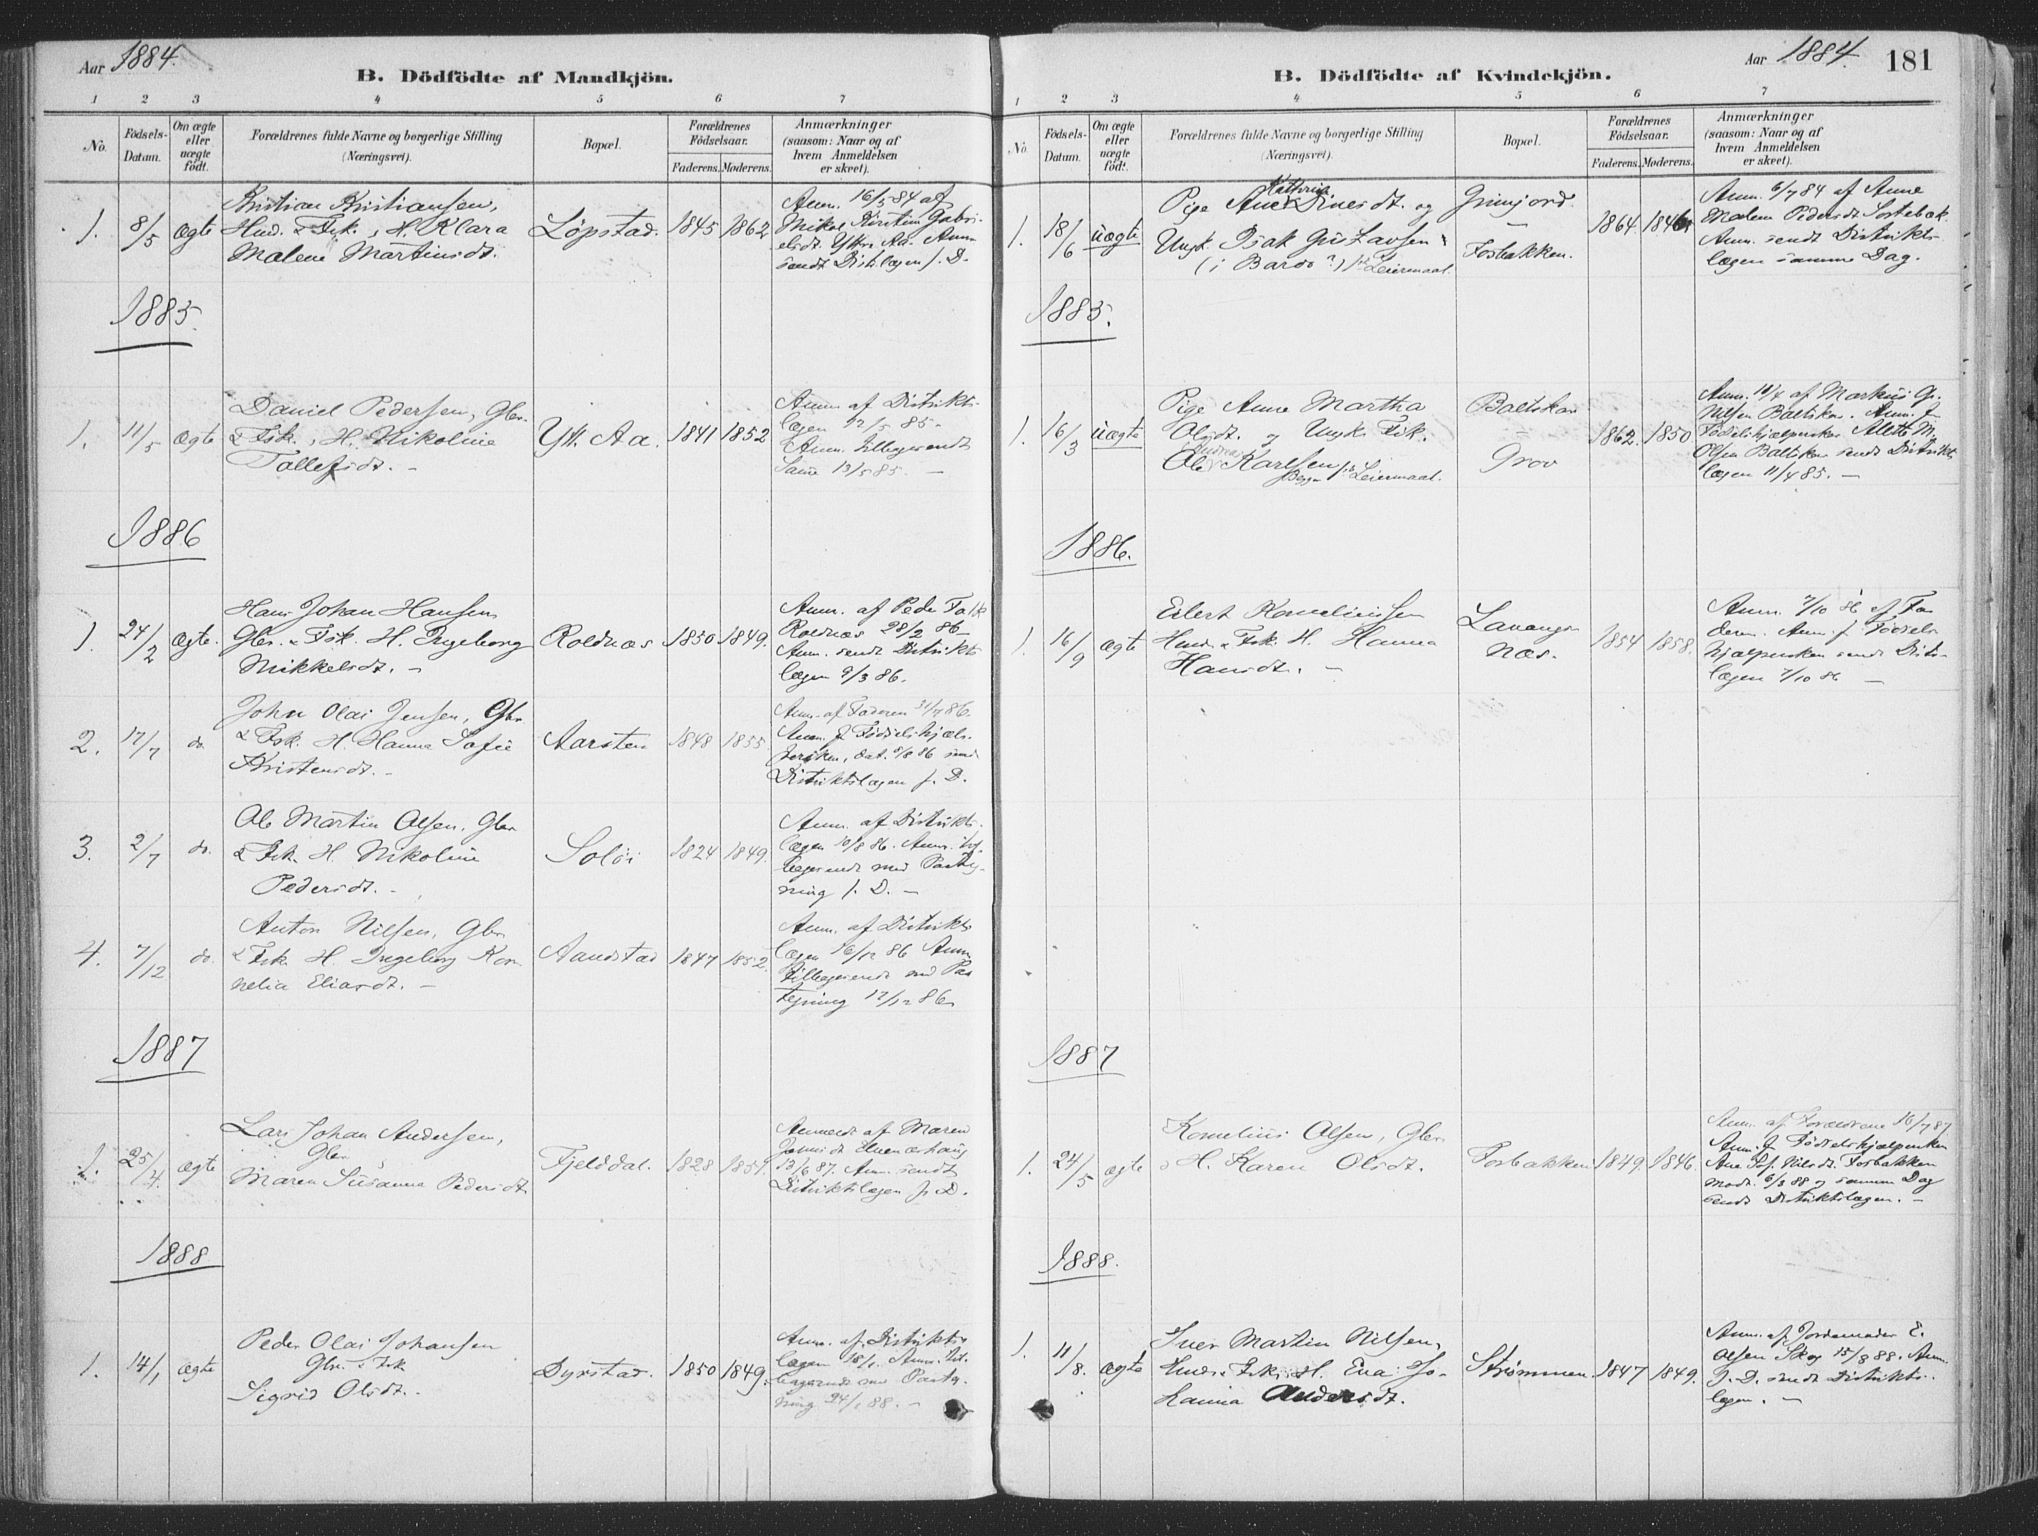 Aar 1884.
B. Dödfödte af Mandkjön.
1 2 3 4 5 6 7
No. Födsels-Datum. Om ægte eller uægte födt. Forældrenes fulde Navne og borgerlige Stilling (Næringsvei). Bopæl. Forældrenes Födselsaar. Faderens. Moderens. Anmærkninger (saasom: Naar og af hvem Anmeldelsen er skeet).
1. 8/5 Ægte Kristian Kristiansen,
Hmd. & Fsk., H. Klara
Malene Martinsdt.
Løpstad. 1845 1862
Anm. 16/5 84 af
Mikal Kirstine Gabri-
elsdt. Ytre Aa. Anm
sendt Distr.lægen s. D.
1885.
1. 11/5 Ægte Daniel Pedersen, Gbr.
& Fsk., H. Nikoline
Tollefsdt. -
Ytt. Aa. 1841 1852
Anm. af Distrikts-
lægen 12/5 85.-
Anm. tillegerendt
Same 13/5 85. -
1886
1. 24/2 Ægte. Hans Johan Hansen
Gbr. & Fsk. H. Ingeborg
Mikkelsdt. -
Roldnæs 1850 1849.
Anm. af Peder
Roldnæs 28/2 86-
Anm. sendt Distrikts
lægen 9/3 86.
2. 17/7 do. John Olai Jensen, Gbr.
& Fsk. H. Hanna Sofie
Kristensdt. -
Aarsten 1848 1855.
Anm. af Faderen 31/7 86.
Anm. f. Fødselshjæl-
persken, dat. 9/8 86 send
Distriktslægen s. D.
3. 2/7 do. Ole Martin Olsen, Gbr
& Fsk. H. Nikoline
Pedersdt. -
Soløi 1824 1849.
Anm. af Distrikts-
lægen 10/8 86. Anm. til-
bagesendt med Paateg-
ning s. D. -
4. 7/12 do. Anton Nilsen, Gbr
& Fsk. H. Ingeborg Kor-
nelia Eliasdt. -
Aandstad 1847 1852.
Anm. af Distrikts
lægen 16/12 86 Anm
tilbagesendt med Paa
tegning 17/12 86
1887
1. 25/4. Ægte Lars Johan Andersen,
Gbr.
Maren Susanna Pedersdt.
Fjelddal. 1828 1851.
Anmeldt af Maren
13/6 87. Anm. sendt
Distriktslægen s. D.
1888
1. 14/1 ægte Peder Olai Johansen
Gbr. & Fsk
Sigrid Olsdt. -
Dyrstad. 1850 1849.
Anm. af Distrikts-
lægen 18/1. Anm. til-
bagesendt med Paateg-
ning 24/1 88. -
Aar 1884. 181
B. Dödfödte af Kvindekjön.
1 2 3 4 5 6 7
No. Födsels-Datum. Om ægte eller uægte födt. Forældrenes fulde Navne og borgerlige Stilling (Næringsvei). Bopæl. Forældrenes Födselsaar. Faderens. Moderens. Anmærkninger (saasom: Naar og af hvem Anmeldelsen er skeet).
1. 18/6 uægte Pige Ane Kathrine Dinesdt. og
Ungk. Isak Gustavsen
(i Bardo?) Leiermaal
Grimjord.
-
Fosbakken.
1864. 1846
Anm. 6/7 84 af Anne
Malene Pedersdt. Fosbak.
Anm. sendt Distrikts
lægen samme Dag.
1885.
1. 16/3 uægte Pige Anne Martha
Olsdt. og Ungk. Fsk.
Ole Andreas Karlsen
Begge 1ste Leiermaal.
Baltskar
-
Grov
1862. 1850
Anm. 11/4 af Markus G.
Nilsen Baltskar. Anm. f.
Fødselshjælpersken Alette M.
Olsen Baltskar sendt Distrikts
lægen 11/4 85. -
1886.
1. 16/9 Ægte Eilert Korneliussen
Hmd. & Fsk. H. Hanna
Hansdt. -
Lavangs
næs.
1854 1858.
Anm. 7/10 86 af Fa
deren. Anm. f. Fødsels
hjælpersken sendt Distr-
lægen 7/10 86 -
1887
1. 24/5 ægte Kornelius Olsen, Gbr
& H. Karen Olsdt.
Fosbakken 1849. 1846.
Anm. af Forældrene 16/7 87
Anm. f. Fødselshjælpersken
Ane Sof. Nilsdt. Fosbakken
modt. 6/3 88 og samme Dag
sendt Distriktslægen. -
1888.
1. 11/8. Ægte Iver Martin Nilsen,
Hmd. & Fsk. H. Eva Jo-
hanna Andersdt.
Strømmen. 1847 1849.
Anm. af Jordemoder E.
Olsen Skog 15/8 88. Anm.
s. D. sendt Distrikts-
lægen. -